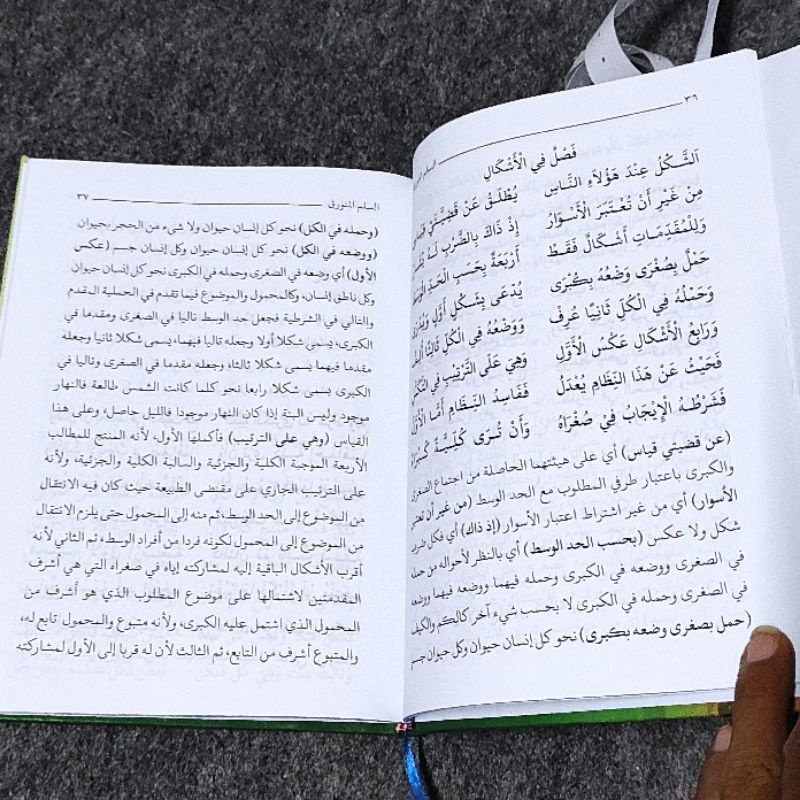 ٣٦
السلم
فَصْلٌ فِي الْأَشْكَالِ
الشَّكْلُ عِنْدَ هَؤُلَاءِ النَّاسِ يُطْلَقُ عَنْ قَضِيَّتَيْ
مِنْ غَيْرِ أَنْ تُعْتَبَرَ الْأَسْوَارُ إِذْ ذَاكَ بِالضَّرْبِ لَهُ
وَلِلْمُقَدِّمَاتِ أَشْكَالٌ فَقَطْ أَرْبَعَةٌ بِحَسَبِ الْحَدِّ
حَمْلٌ بِصُغْرَى وَضْعُهُ بِكُبْرَى يُدْعَى بِشَكْلٍ أَوَّلٍ
وَحَمْلُهُ فِي الْكُلِّ ثَانِيًا عُرِفْ وَوَضْعُهُ فِي الْكُلِّ ثَالِثًا
وَرَابِعُ الْأَشْكَالِ عَكْسُ الْأَوَّلِ وَهِيَ عَلَى التَّرْتِيبِ فِي
فَحَيْثُ عَنْ هَذَا النِّظَامِ يُعْدَلُ فَفَاسِدُ النِّظَامِ أَمَّا
فَشَرْطُهُ الْإِيْجَابُ فِيْ صُغْرَاهُ وَأَنْ تُرَى كُلِّيَّةً
(عن قضيتي قياس) أي على هيئتهما الحاصلة من اجتماع الصغرى
والكبرى باعتبار طرفي المطلوب مع الحد الوسط (من غير أن
الأسوار) أي من غير اشتراط اعتبار الأسوار (إذ ذاك) أي فكل
شكل ولا عكس (بحسب الحد الوسط) أي بالنظر لأحواله من
في الصغرى ووضعه في الكبرى وحمله فيهما ووضعه فيهما ووضعه
في الصغرى وحمله في الكبرى لا بحسب شيء آخر كالكم والكيف
(حمل بصغرى وضعه بكبرى) نحو كل إنسان حيوان وكل حيوان جسم
السلم المنورق ٣٧
(وحمله في الكل) نحو كل إنسان حيوان ولا شيء من الحجر بحيوان
(ووضعه في الكل) نحو كل إنسان حيوان وكل إنسان جسم (عكس
الأول) أي وضعه في الصغرى وحمله في الكبرى نحو كل إنسان حيوان
وكل ناطق إنسان، وكالمحمول والموضوع فيما تقدم في الحملية المقدم
والتالي في الشرطية فجعل حد الوسط تاليا في الصغرى ومقدما في
الكبرى، يسمى شكلا أولا وجعله تاليا فيهما، يسمى شكلا ثانيا وجعله
مقدما فيهما يسمى شكلا ثالثا، وجعله مقدما في الصغرى وتاليا في
الكبرى يسمى شكلا رابعا نحو كلما كانت الشمس طالعة فالنهار
موجود وليس البتة إذا كان النهار موجودا فالليل حاصل، وعلى هذا
القياس (وهي على الترتيب) فأكملها الأول، لأنه المنتج للمطالب
الأربعة الموجبة الكلية والجزئية والسالبة الكلية والجزئية، ولأنه
على الترتيب الجاري على مقتضى الطبيعة حيث كان فيه الانتقال
من الموضوع إلى الحد الوسط، ثم منه إلى المحمول حتى يلزم الانتقال
من الموضوع إلى المحمول لكونه فردا من أفراد الوسط، ثم الثاني لأنه
أقرب الأشكال الباقية إليه لمشاركته إياه في صغراه التي هي أشرف
المقدمتين لاشتمالها على موضوع المطلوب الذي هو أشرف من
المحمول الذي اشتمل عليه الكبرى، ولأنه متبوع والمحمول تابع له،
والمتبوع أشرف من التابع، ثم الثالث لأن له قربا إلى الأول لمشاركته